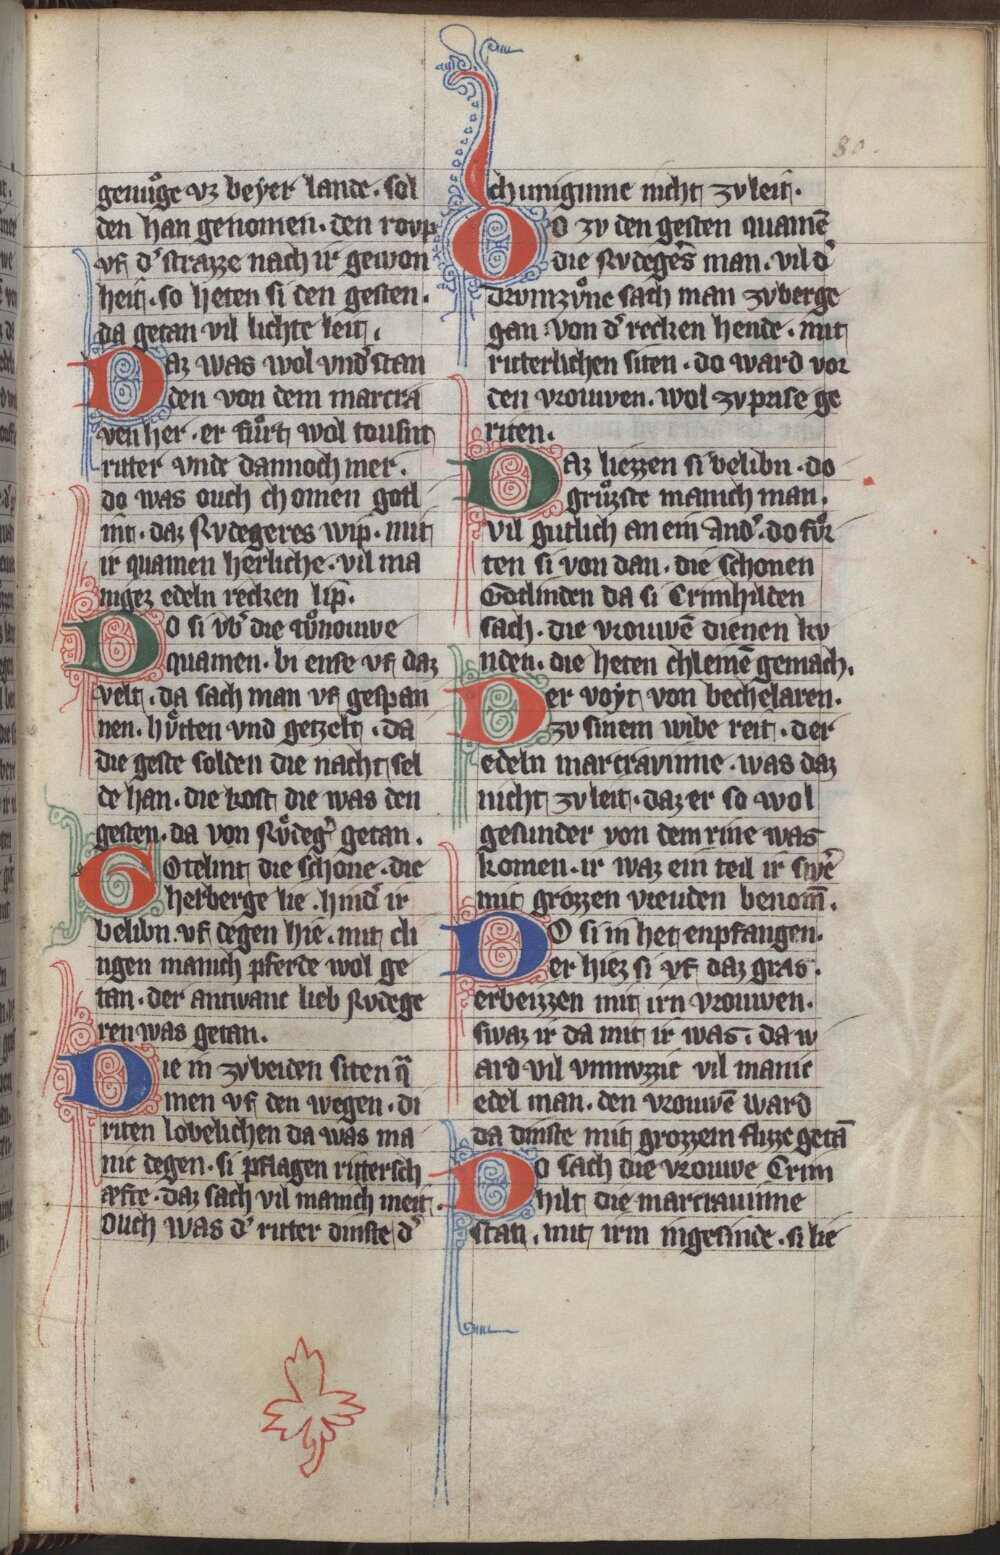 80.
genůge vz beyer lande. sol
den han genomen. den rovp
vf d' strazze nach ir gewon
heit. so heten si den gesten.
da getan vil lichte leit.
Daz was wol vnd' stan
den von dem marcra
ven her. er fůrt wol tousnt
ritter vnde dannoch mer.
do was ouch chomen gotl
int. daz Rvdegeres wip. mit
ir quamen herliche. vil ma
nigez edeln recken lip.
Do si vb' die trůnouwe
quamen. bi ense vf daz
velt. da sach man vf gespan
nen. hůtten vnd getzelt. da
die geste solden die nacht sel
de han. die kost die was den
gesten. da von Růdeg' getan.
Gotelint die schone. die
herberge lie. hind' ir
belibn. vf degen hie. mit cli
ngen manich pferde wol ge
tan. der antwanc lieb Rvdege
ren was getan.
Die in zv beiden siten q̄
men vf den wegen. di
riten lobelichen da was ma
nic degen. si pflagen rittersch
afte. daz sach vil manich meit.
Ouch was d' ritter dinste d'
chuniginne nicht zv leit.
Do zv den gesten quamē
die Rvdegēs man. vil d'
drvmzůne sach man zv berge
gan von d' recken hende. mit
ritterlichen siten. do ward vor
den vrouwen. wol zv prise ge
riten.
Daz liezzen si belibn. do
grůzste manich man.
vil gutlich an ein and'. do fůr
ten si von dan. die schonen
Gotlinden da si Crimhilden
sach. die vrouwē dienen kv
nden. die heten chlemē gemach.
Der voyt von bechelaren.
zv sinem wibe reit. der
edeln marcravinne. was daz
nicht zv leit. daz er so wol
gesunder von dem rine was
komen. ir waz ein teil ir swē
mit grozzen vreuden benom̄.
Do si in het enpfangen.
er hiez si vf daz gras.
erbeizzen mit irn vrouwen.
swaz ir da mit ir was. da w
ard vil vnmvzzic vil manic
edel man. den vrouwē ward
da dinste mit grozzem flizze getā
Do sach die vrouwe Crim
hilt die marcrauinne
stan. mit irm ingesinde. si lie